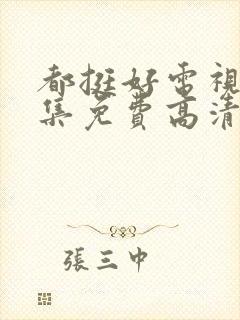 都挺好電視
集免費高清
張三中